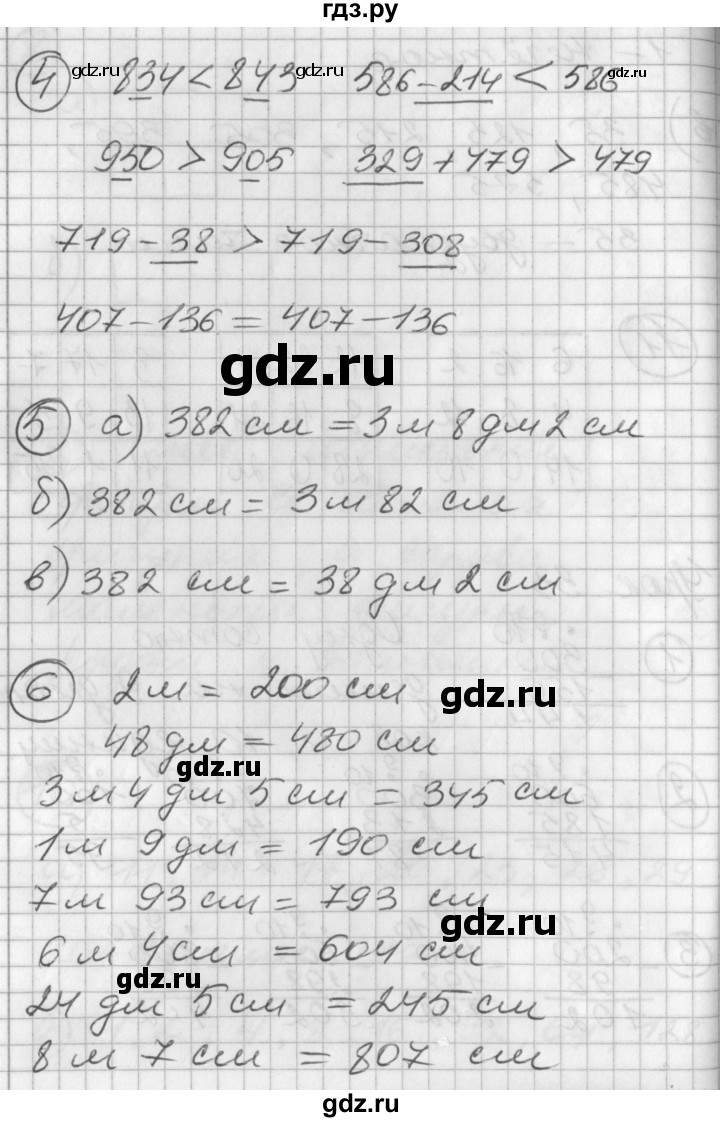 гдз.ру
4 834 < 843 586 - 214 < 586
950 > 905 329 + 479 > 479
719 - 38 > 719 - 308
407 - 136 = 407 - 136
gdz.ru
5 а) 382 см = 3 м 8 дм 2 см
б) 382 см = 3 м 82 см
в) 382 см = 38 дм 2 см
6 2 м = 200 см
gdz.ru
48 дм = 480 см
gdz.ru
3 м 4 дм 5 см = 345 см
1 м 9 дм = 190 см
7 м 93 см = 793 см
gdz.ru
6 м 4 см = 604 см
gdz.ru
24 дм 5 см = 245 см
8 м 7 см = 807 см
gdz.ru